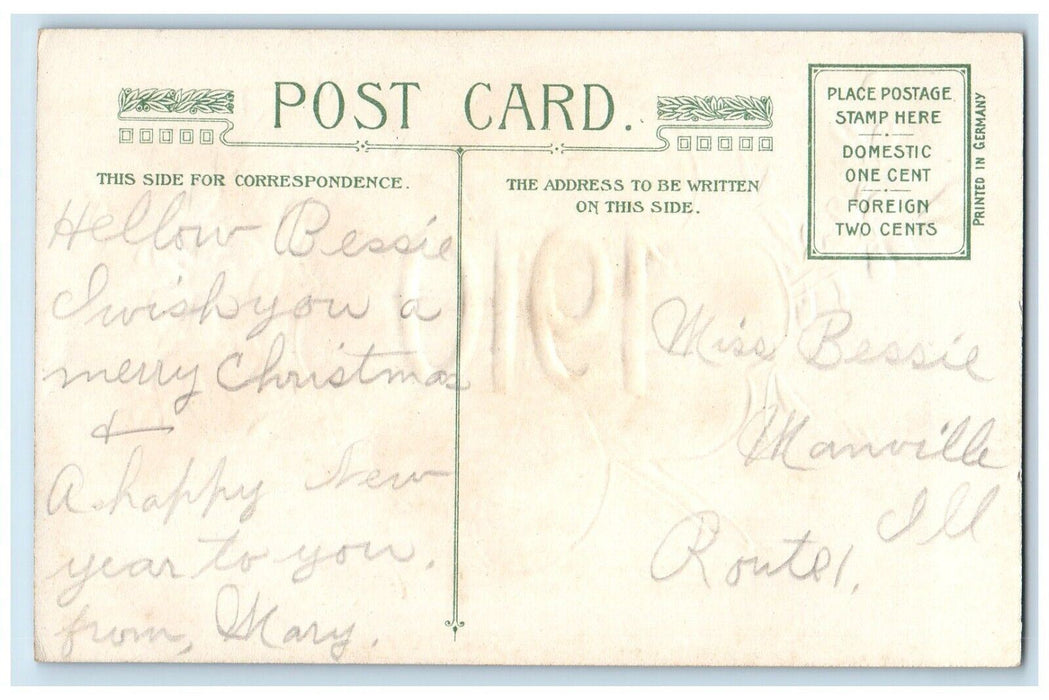 POST CARD.
THIS SIDE FOR CORRESPONDENCE.
Hellow Bessie
I wish you a
merry Christmas
+
A happy New
year to you.
from, Mary.
THE ADDRESS TO BE WRITTEN
ON THIS SIDE.
PLACE POSTAGE
STAMP HERE
DOMESTIC
ONE CENT
FOREIGN
TWO CENTS
PRINTED IN GERMANY
Miss Bessie
Manville,
Ill
Route 1.